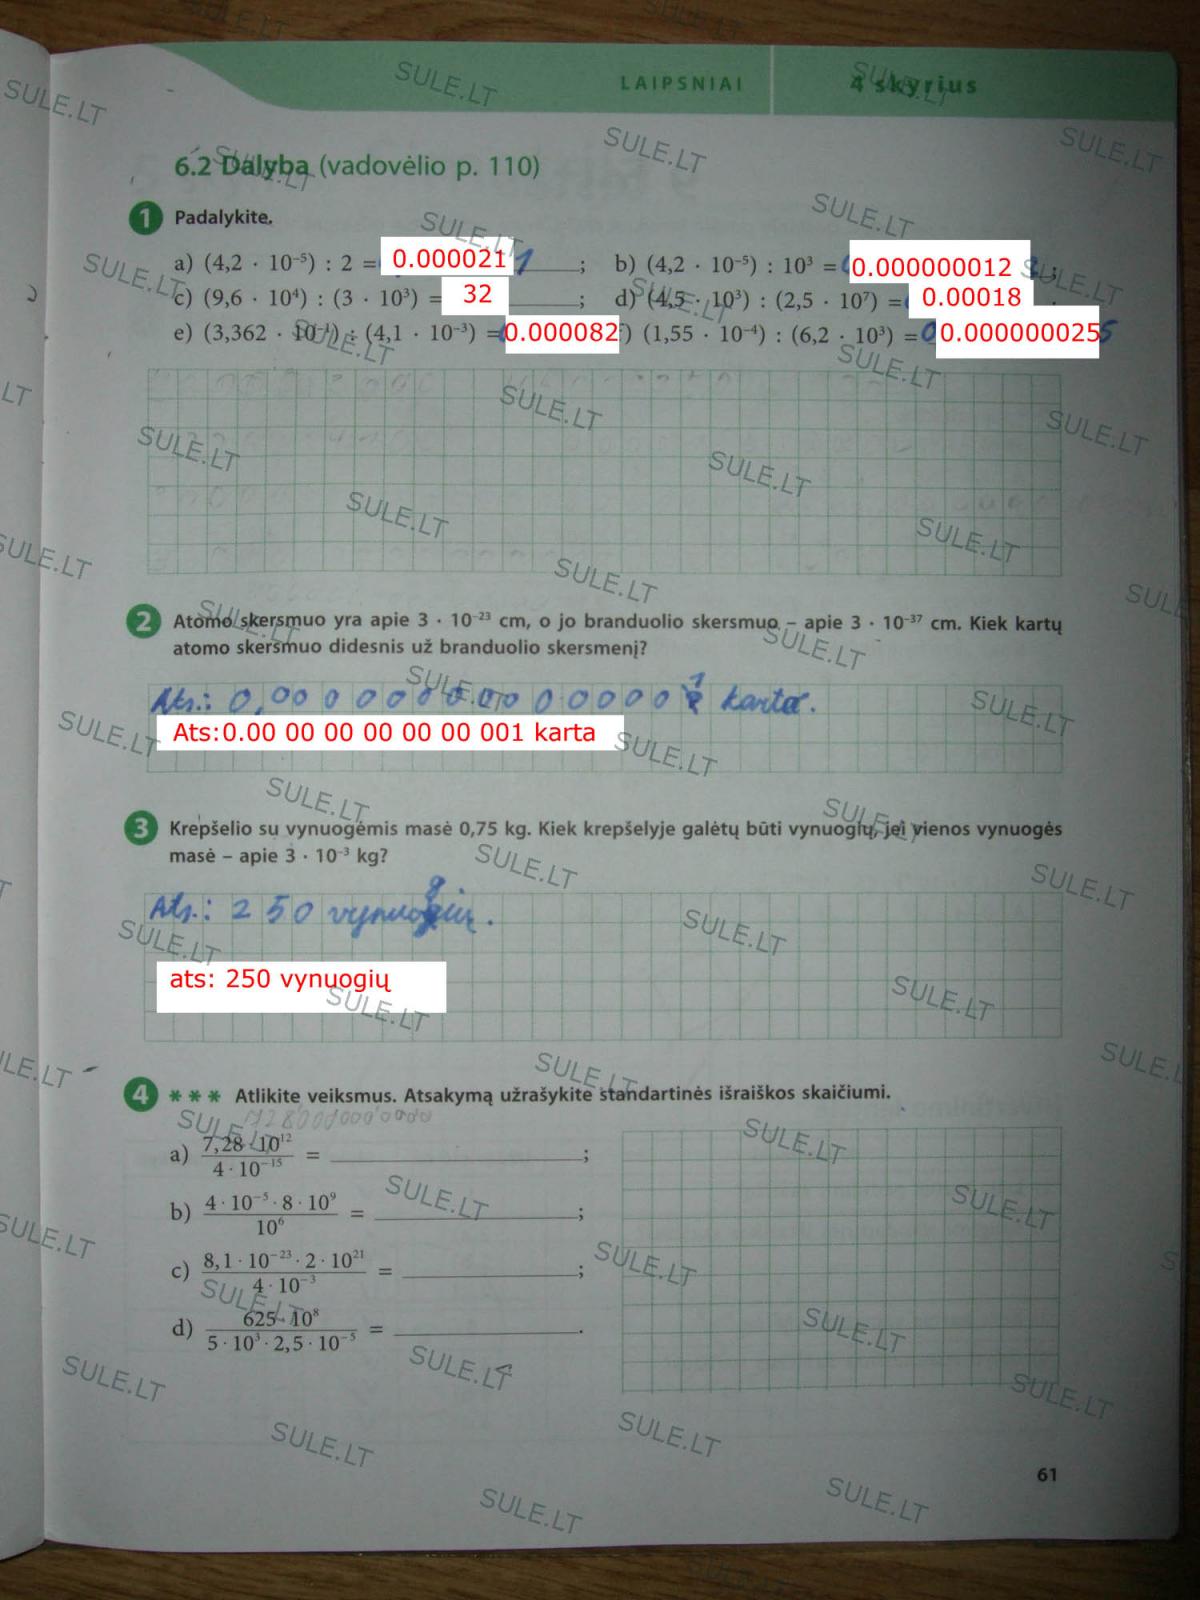 LAIPSNIAI 4 skyrius
6.2 Dalyba (vadovėlio p. 110)
1 Padalykite.
a) (4,2 · 10⁻⁵) : 2 = 0.000021 ; b) (4,2 · 10⁻⁵) : 10³ = 0.000000012 ;
c) (9,6 · 10⁴) : (3 · 10³) = 32 ; d) (4,5 · 10³) : (2,5 · 10⁷) = 0.00018 .
e) (3,362 · 10⁻¹) : (4,1 · 10⁻³) = 0.000082 f) (1,55 · 10⁻⁴) : (6,2 · 10³) = 0.000000025
2 Atomo skersmuo yra apie 3 · 10⁻²³ cm, o jo branduolio skersmuo – apie 3 · 10⁻³⁷ cm. Kiek kartų
atomo skersmuo didesnis už branduolio skersmenį?
Ats.: 0,00 0 0 0 0 0 0 0 0 0 0 0 1 karta.
Ats:0.00 00 00 00 00 00 001 karta
3 Krepšelio su vynuogėmis masė 0,75 kg. Kiek krepšelyje galėtų būti vynuogių, jei vienos vynuogės
masė – apie 3 · 10⁻³ kg?
Ats.: 250 vynuogių.
ats: 250 vynuogių
4 * * * Atlikite veiksmus. Atsakymą užrašykite standartinės išraiškos skaičiumi.
a) 7,28 · 10¹² / 4 · 10⁻¹⁵ = ;
b) 4 · 10⁻⁵ · 8 · 10⁹ / 10⁶ = ;
c) 8,1 · 10⁻²³ · 2 · 10²¹ / 4 · 10⁻³ = ;
d) 625 · 10⁸ / 5 · 10³ · 2,5 · 10⁻⁵ = .
61
SULE.LT